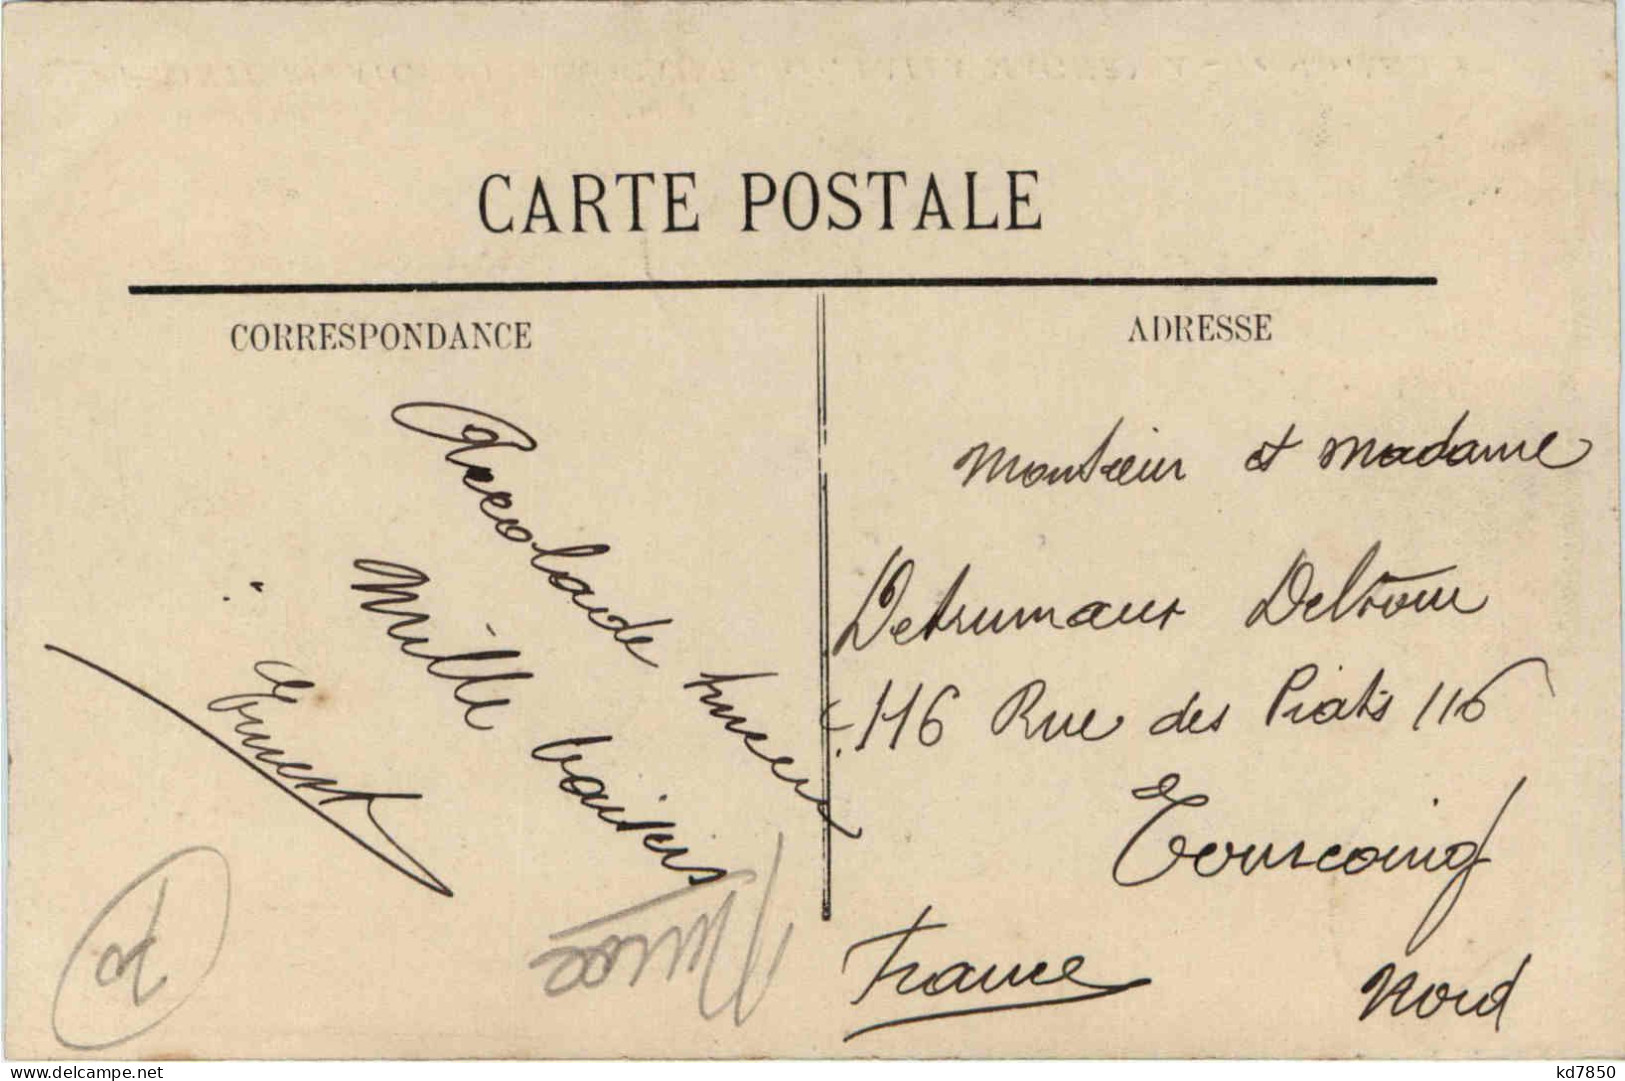 CARTE POSTALE
CORRESPONDANCE
Accolade
Mille baisers
Ernest
ADRESSE
Monsieur et Madame
Detrumaux Deltour
116 Rue des Piats 116
Tourcoing
France
Nord
delcampe.net
kd7850